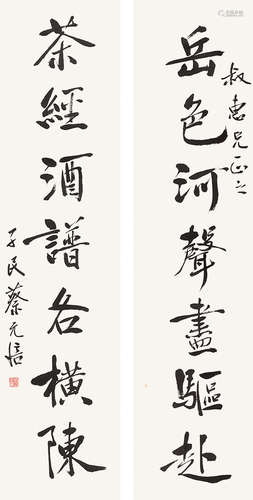 岳色河聲盡驅赴
叔惠兄正之
茶經酒譜各橫陳
孑民蔡元培